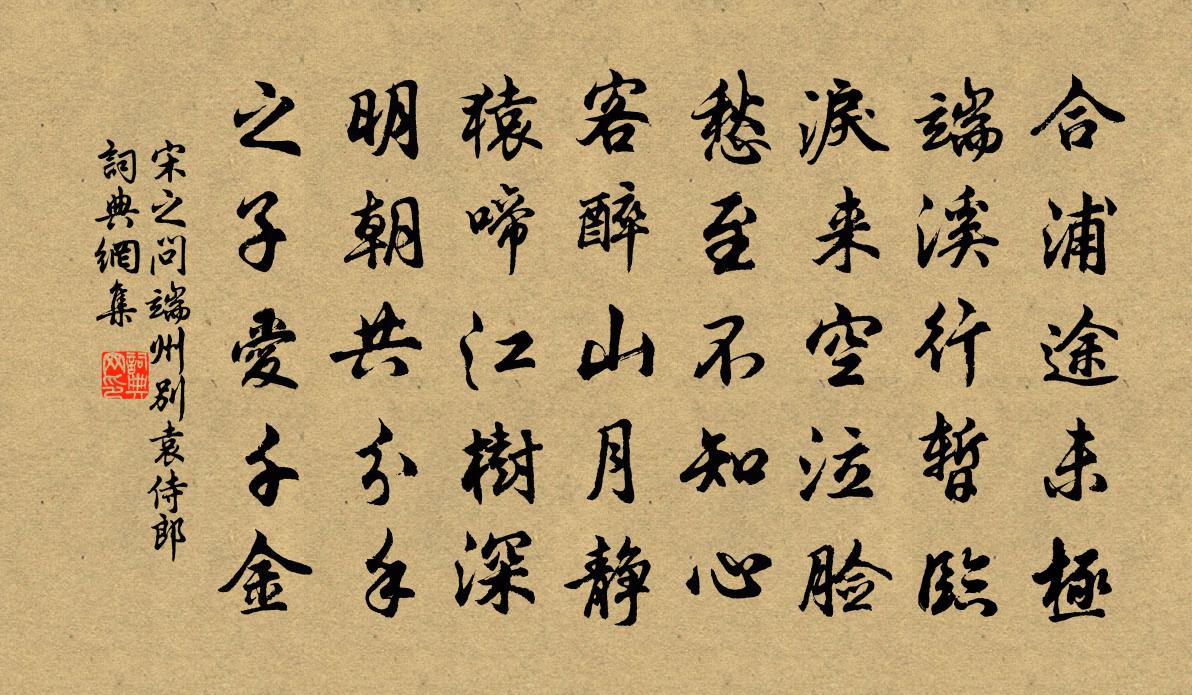 合浦途未極
端溪行暫臨
淚来空泣脸
愁至不知心
客醉山月静
猿啼江樹深
明朝共分手
之子愛千金
宋之问端州别袁侍郎
詞典網集
詞典网印